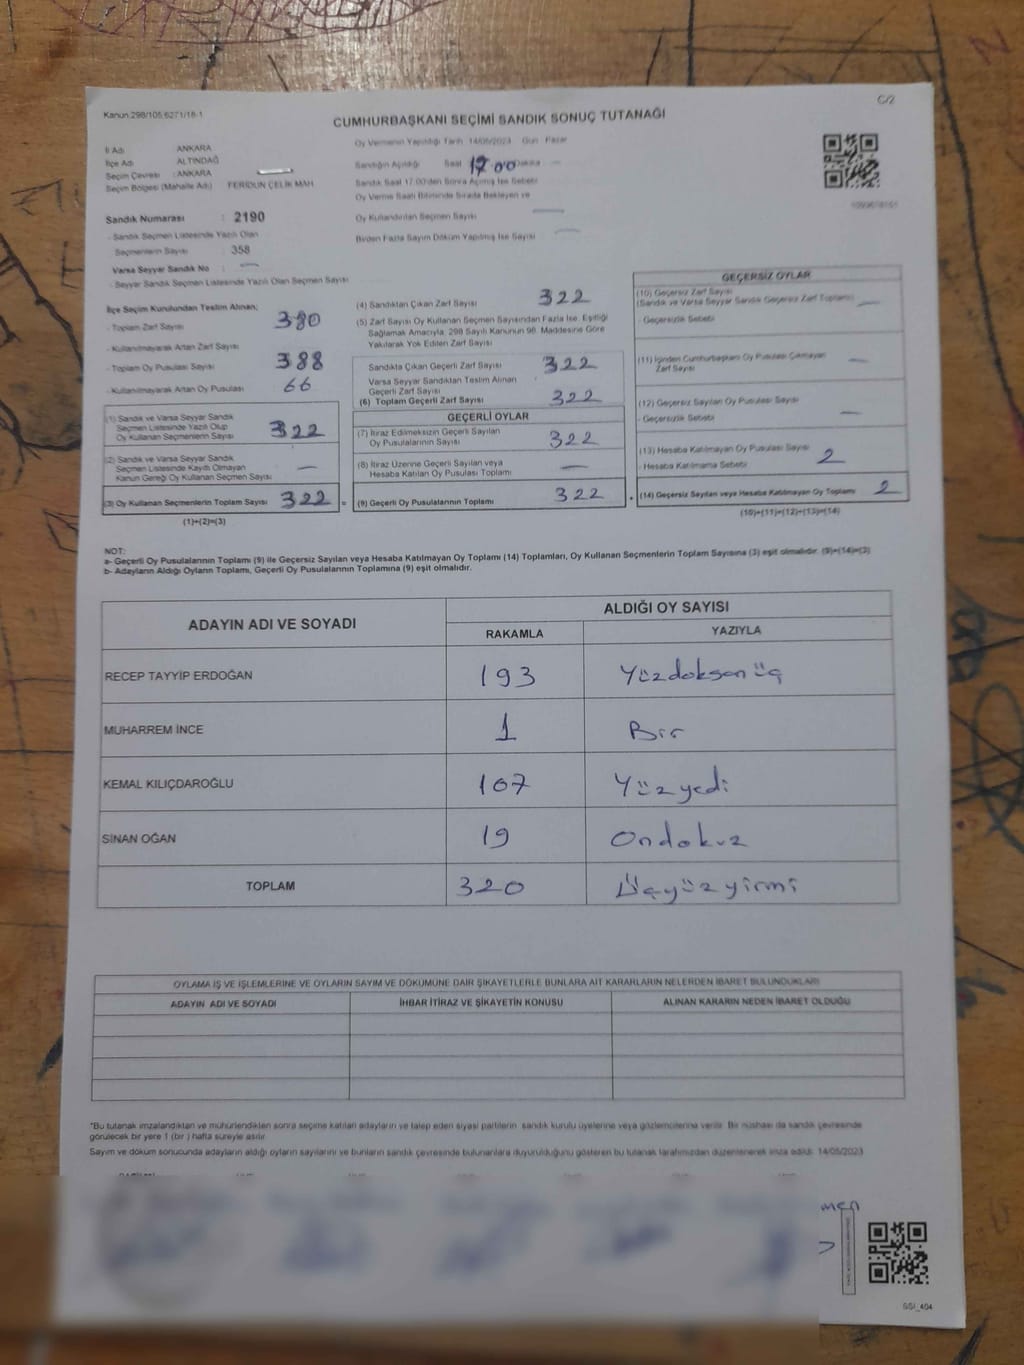 Kanun:298/105;6271/18-1
C/2
CUMHURBAŞKANI SEÇİMİ SANDIK SONUÇ TUTANAĞI
İl Adı ANKARA
İlçe Adı ALTINDAĞ
Seçim Çevresi : ANKARA
Seçim Bölgesi (Mahalle Adı) FERİDUN ÇELİK MAH
Sandık Numarası : 2190
- Sandık Seçmen Listesinde Yazılı Olan
Seçmenlerin Sayısı : 358
Varsa Seyyar Sandık No : —
- Seyyar Sandık Seçmen Listesinde Yazılı Olan Seçmen Sayısı
Oy Vermenin Yapıldığı Tarih 14/05/2023 Gün : Pazar
Sandığın Açıldığı Saat 17:00 Dakika —
Sandık Saat 17:00'den Sonra Açılmış İse Sebebi
Oy Verme Saati Bitiminde Sırada Bekleyen ve
Oy Kullandırılan Seçmen Sayısı —
Birden Fazla Sayım Döküm Yapılmış İse Sayısı —
İlçe Seçim Kurulundan Teslim Alınan;
- Toplam Zarf Sayısı 380
- Kullanılmayarak Artan Zarf Sayısı
- Toplam Oy Pusulası Sayısı 388
- Kullanılmayarak Artan Oy Pusulası 66
(1) Sandık ve Varsa Seyyar Sandık
Seçmen Listesinde Yazılı Olup
Oy Kullanan Seçmenlerin Sayısı 322
(2) Sandık ve Varsa Seyyar Sandık
Seçmen Listesinde Kaydı Olmayan
Kanun Gereği Oy Kullanan Seçmen Sayısı —
(3) Oy Kullanan Seçmenlerin Toplam Sayısı 322 =
(1)+(2)=(3)
(4) Sandıktan Çıkan Zarf Sayısı 322
(5) Zarf Sayısı Oy Kullanan Seçmen Sayısından Fazla İse, Eşitliği
Sağlamak Amacıyla; 298 Sayılı Kanunun 98. Maddesine Göre
Yakılarak Yok Edilen Zarf Sayısı
Sandıkta Çıkan Geçerli Zarf Sayısı 322
Varsa Seyyar Sandıktan Teslim Alınan
Geçerli Zarf Sayısı
(6) Toplam Geçerli Zarf Sayısı 322
GEÇERLİ OYLAR
(7) İtiraz Edilmeksizin Geçerli Sayılan
Oy Pusulalarının Sayısı 322
(8) İtiraz Üzerine Geçerli Sayılan veya
Hesaba Katılan Oy Pusulası Toplamı —
(9) Geçerli Oy Pusulalarının Toplamı 322 +
GEÇERSİZ OYLAR
(10) Geçersiz Zarf Sayısı
(Sandık ve Varsa Seyyar Sandık Geçersiz Zarf Toplamı) —
- Geçersizlik Sebebi
(11) İçinden Cumhurbaşkanı Oy Pusulası Çıkmayan
Zarf Sayısı —
(12) Geçersiz Sayılan Oy Pusulası Sayısı
- Geçersizlik Sebebi —
(13) Hesaba Katılmayan Oy Pusulası Sayısı 2
- Hesaba Katılmama Sebebi
(14) Geçersiz Sayılan veya Hesaba Katılmayan Oy Toplamı 2
(10)+(11)+(12)+(13)=(14)
NOT:
a- Geçerli Oy Pusulalarının Toplamı (9) ile Geçersiz Sayılan veya Hesaba Katılmayan Oy Toplamı (14) Toplamları, Oy Kullanan Seçmenlerin Toplam Sayısına (3) eşit olmalıdır. (9)+(14)=(3)
b- Adayların Aldığı Oyların Toplamı, Geçerli Oy Pusulalarının Toplamına (9) eşit olmalıdır.
ADAYIN ADI VE SOYADI ALDIĞI OY SAYISI
RAKAMLA YAZIYLA
RECEP TAYYİP ERDOĞAN 193 Yüzdoksanüç
MUHARREM İNCE 1 Bir
KEMAL KILIÇDAROĞLU 107 Yüzyedi
SİNAN OĞAN 19 Ondokuz
TOPLAM 320 Üçyüzyirmi
OYLAMA İŞ VE İŞLEMLERİNE VE OYLARIN SAYIM VE DÖKÜMÜNE DAİR ŞİKAYETLERLE BUNLARA AİT KARARLARIN NELERDEN İBARET BULUNDUKLARI
ADAYIN ADI VE SOYADI İHBAR İTİRAZ VE ŞİKAYETİN KONUSU ALINAN KARARIN NEDEN İBARET OLDUĞU
"Bu tutanak imzalandıktan ve mühürlendikten sonra seçime katılan adayların ve talep eden siyasi partilerin sandık kurulu üyelerine veya gözlemcilerine verilir. Bir nüshası da sandık çevresinde
görülecek bir yere 1 (bir ) hafta süreyle asılır.
Sayım ve döküm sonucunda adayların aldığı oyların sayılarını ve bunların sandık çevresinde bulunanlara duyurulduğunu gösteren bu tutanak tarafımızdan düzenlenerek imza edildi. 14/05/2023
men
SSI_404